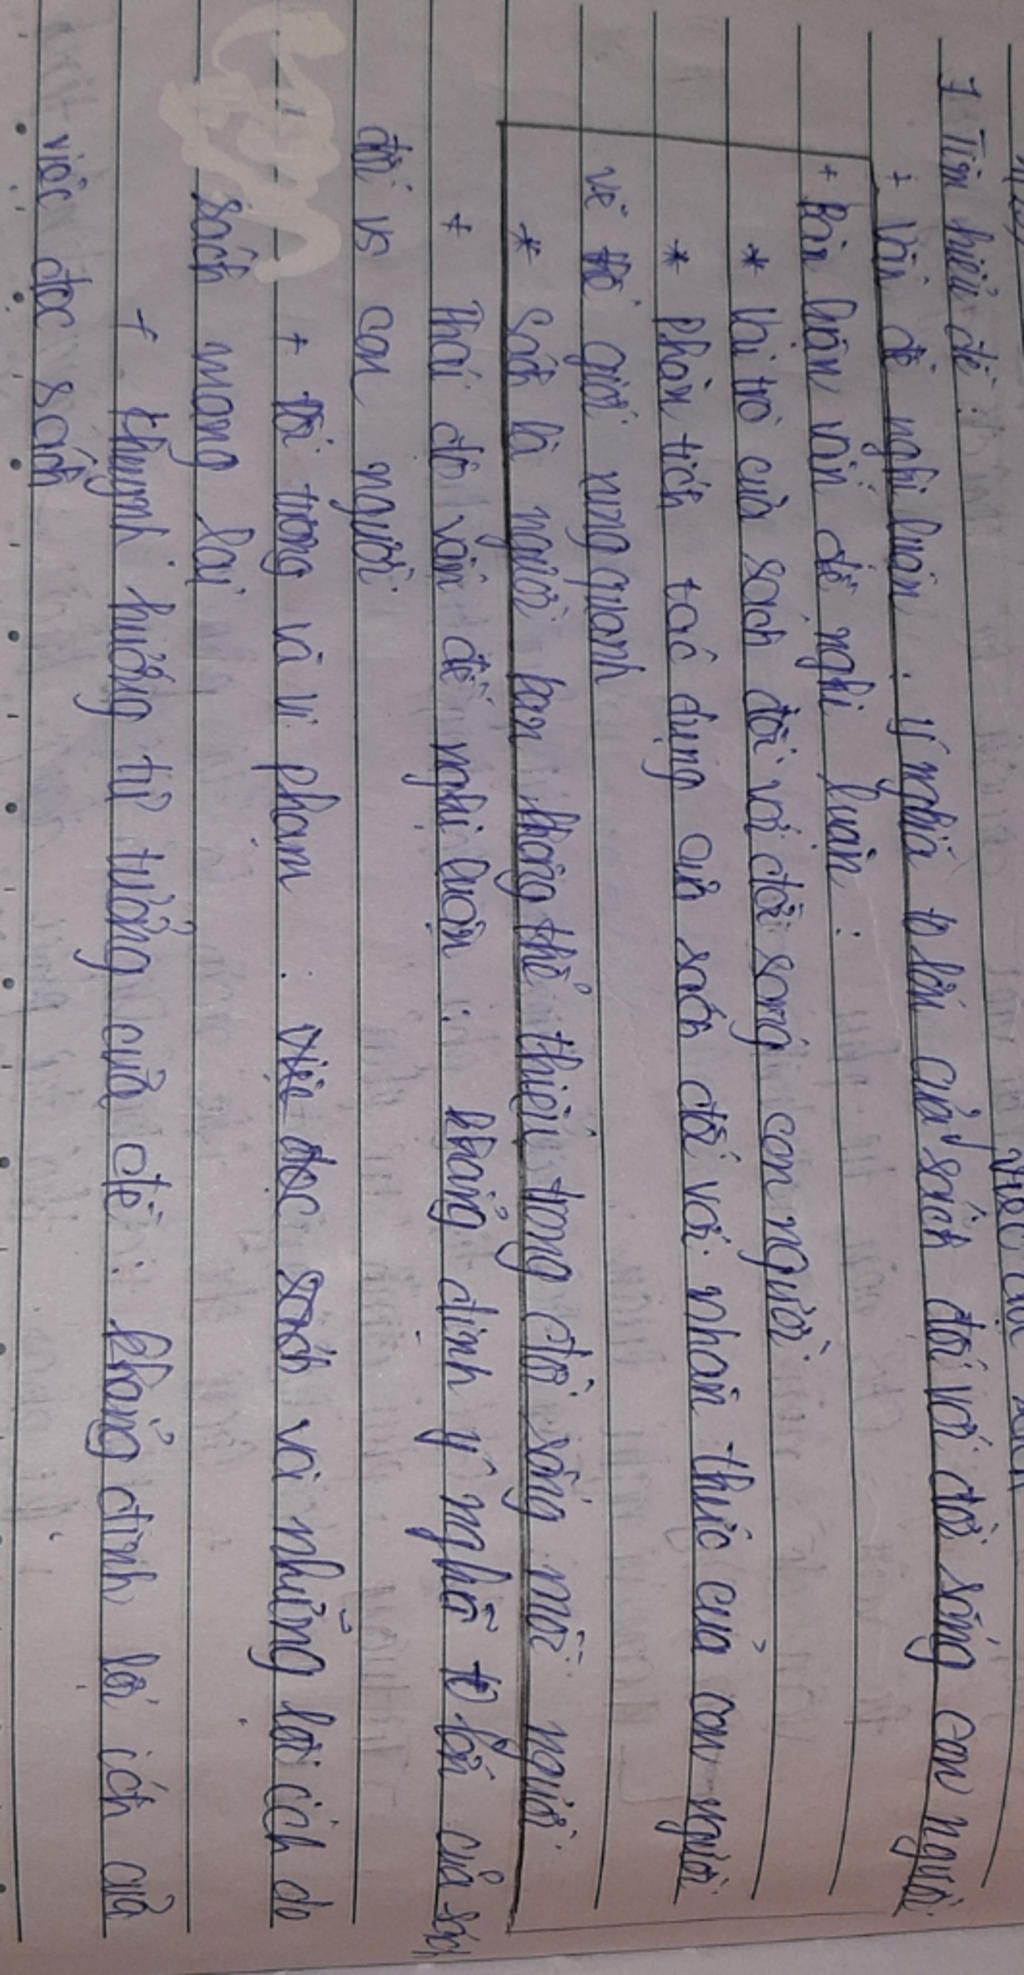 việc đọc sách
1 Tìm hiểu đề:
+ Vấn đề nghị luận: ý nghĩa to lớn của sách đối với đời sống con người
+ Bàn luận vấn đề nghị luận:
* Vai trò của sách đối với đời sống con người
* Phân tích tác dụng của sách đối với nhận thức của con người
về thế giới xung quanh
* Sách là người bạn không thể thiếu trong đời sống mỗi người
+ Thái độ vấn đề nghị luận: khẳng định ý nghĩa to lớn của sách
đối vs con người
+ đối tượng và vi phạm: việc đọc sách và những lợi ích do
sách mang lại
+ khuynh hướng tư tưởng của đề: khẳng định lợi ích của
việc đọc sách